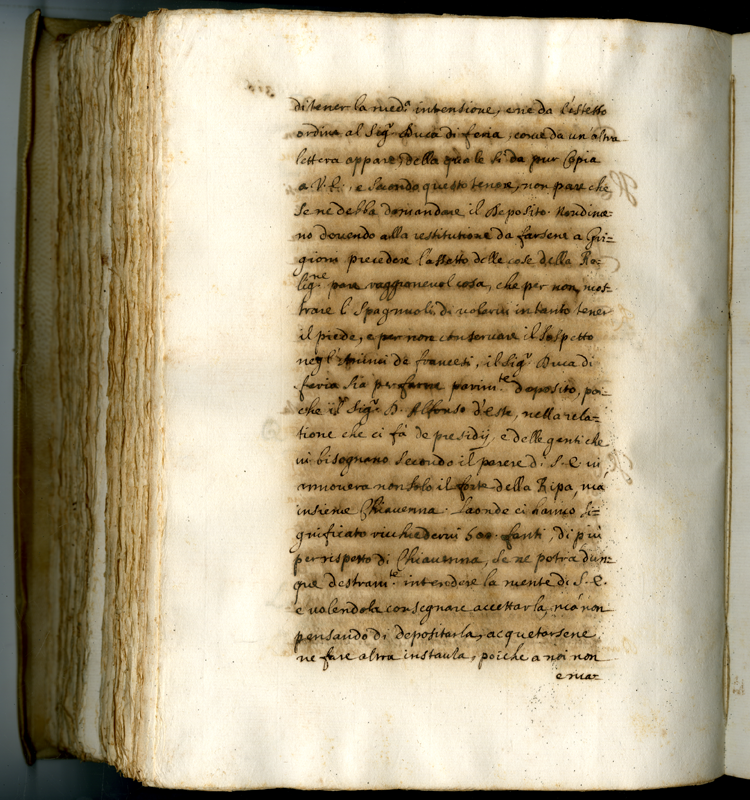 di tener la med.ª intensione, e ne da l'istesso
ordine al Sig.r Duca di feria, come da un'altra
lettera appare, della quale si da pur Copia
a V. E., e secondo questo tenore, non pare che
se ne debba domandare il Deposito. Nondime=
no dovendo alla restitutione da farsene a Gri=
gioni precedere l'assetto delle cose della Re=
lig.ne pare raggionevol cosa, che per non mos=
trare li Spagnuoli di volervi intanto tener
il piede, e per non conservare il sospetto
negl' de francesi, il Sig.r Duca di
feria sia per farne parim.te deposito, poi=
che il Sig.r D. Alfonso d'Este, nella rela=
tione che ci fà de presidij, e delle genti che
vi bisognano secondo il parere di S. E. vi
annovera non solo il forte della Ripa, mà
insieme Chiavenna. Laonde ci hanno si=
gnificato richiedervi 500. fanti, di più
per rispetto di Chiavenna, se ne potrà dun=
que destram.te intendere la mente di S. E.
e volendola consegnare accettarla, mà non
pensando di depositarla, acquetarsene,
ne fare altra instanza, poiche a noi non